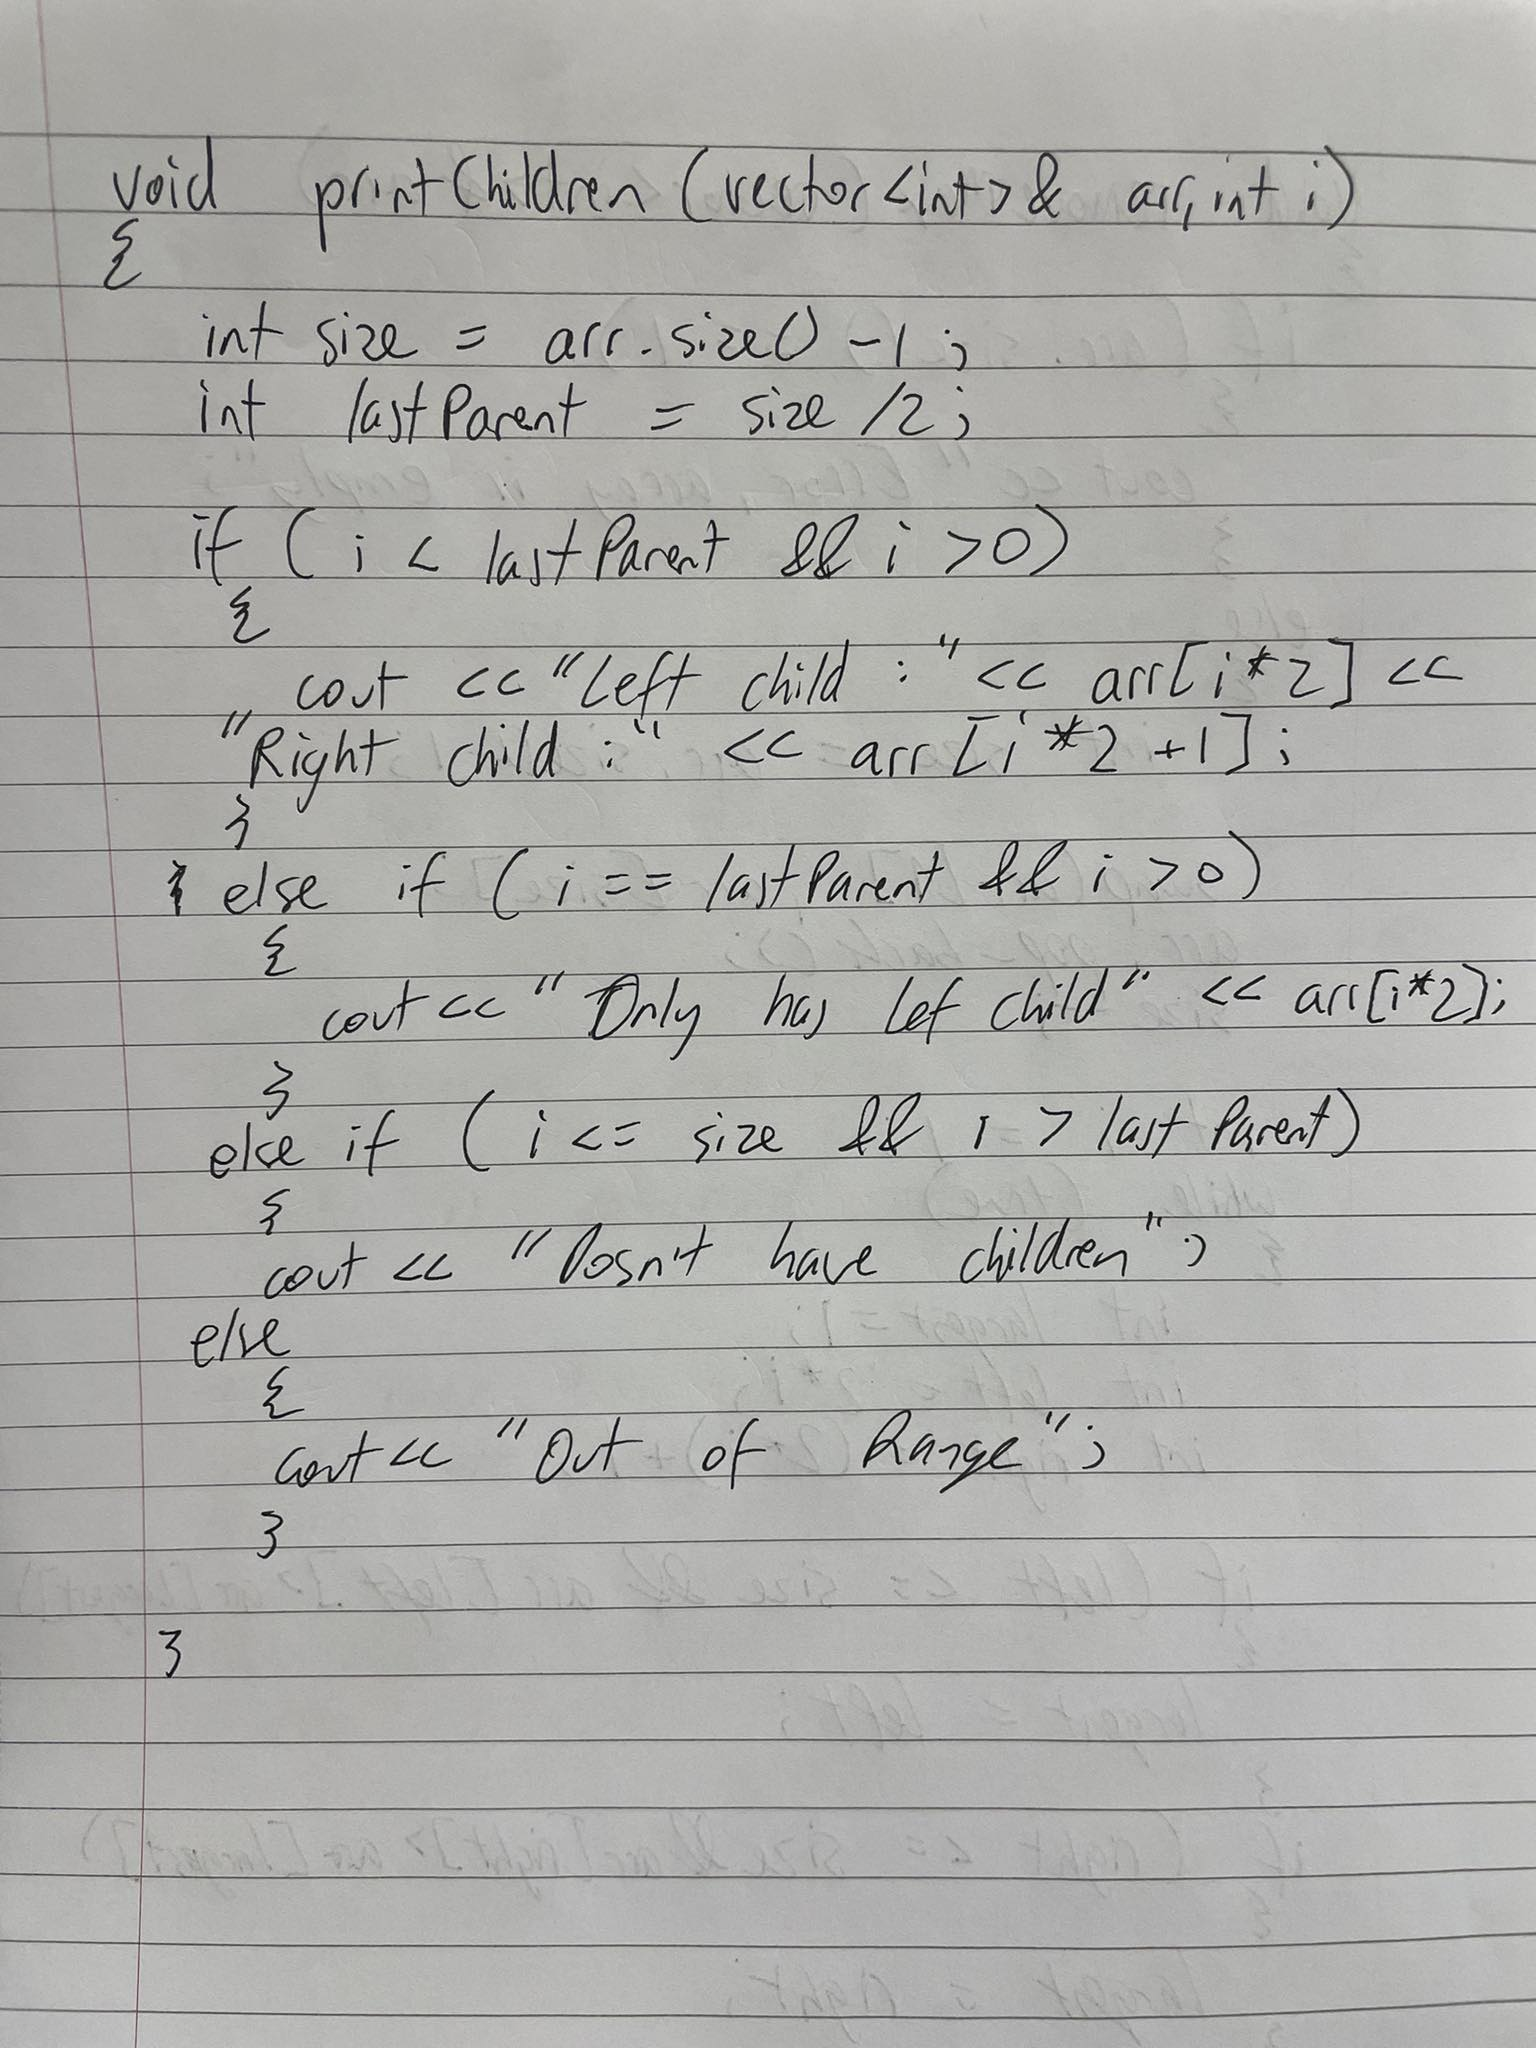 void printChildren (vector<int>& arr, int i)
{
int size = arr.size() -1;
int lastParent = size /2;
if ( i < lastParent && i >0)
{
cout << "Left child : " << arr[i*2] <<
"Right child :" << arr[i*2 +1];
}
else if ( i == lastParent && i >0)
{
cout << "Only has Lef child" << arr[i*2];
}
else if ( i <= size && i > lastParent)
{
cout << "Dosn't have children";
else
{
cout << "Out of Range";
}
}